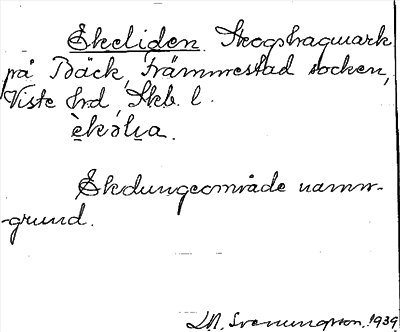 Ekeliden. Skogshagmark
på Bäck, Främmestad socken,
Viste hrd, Skb. l.
è̱kəli̱a.
Ekdungeområde namn-
-grund.
Svenungsson, 1939